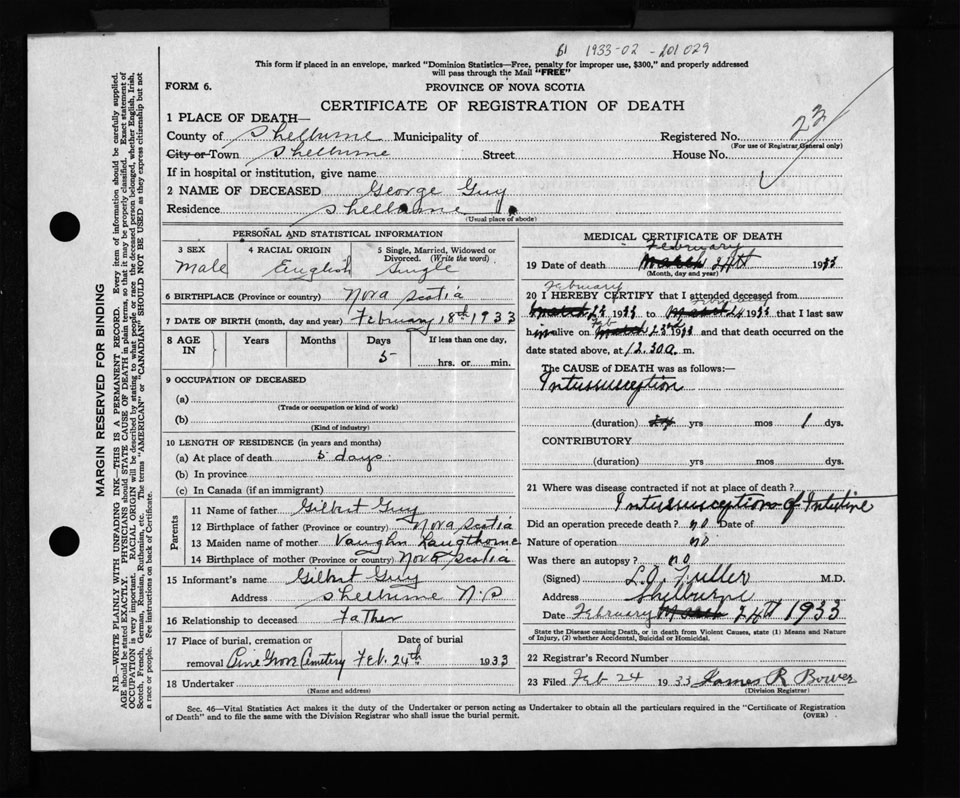 61 1933-02-201029
This form if placed in an envelope, marked "Dominion Statistics—Free, penalty for improper use, $300," and properly addressed
will pass through the Mail "FREE"
FORM 6.
PROVINCE OF NOVA SCOTIA
CERTIFICATE OF REGISTRATION OF DEATH
1 PLACE OF DEATH—
County of Shelburne Municipality of Registered No. 23
(For use of Registrar General only)
City or Town Shelburne Street House No.
If in hospital or institution, give name
2 NAME OF DECEASED George Guy
Residence Shelburne
(Usual place of abode)
PERSONAL AND STATISTICAL INFORMATION
3 SEX 4 RACIAL ORIGIN 5 Single, Married, Widowed or Divorced. (Write the word)
Male English Single
6 BIRTHPLACE (Province or country) Nova Scotia
7 DATE OF BIRTH (month, day and year) February 18th 1933
8 AGE IN Years Months Days If less than one day,
5 hrs. or min.
9 OCCUPATION OF DECEASED
(a)
(Trade or occupation or kind of work)
(b)
(Kind of industry)
10 LENGTH OF RESIDENCE (in years and months)
(a) At place of death 5 days.
(b) In province
(c) In Canada (if an immigrant)
Parents
11 Name of father Gilbert Guy
12 Birthplace of father (Province or country) Nova Scotia
13 Maiden name of mother Vaughn Langthorne
14 Birthplace of mother (Province or country) Nova Scotia
15 Informant's name Gilbert Guy
Address Shelburne N.S
16 Relationship to deceased Father
17 Place of burial, cremation or removal Date of burial
Pine Grove Cemetery Feb. 24th 1933
18 Undertaker
(Name and address)
MEDICAL CERTIFICATE OF DEATH
February
19 Date of death March 24th 1933
(Month, day and year)
February
20 I HEREBY CERTIFY that I attended deceased from
March 23 1933 to March 24 1933 that I last saw
him alive on Feb March 23rd 1933 and that death occurred on the
date stated above, at 12.30 a. m.
The CAUSE of DEATH was as follows:—
Intussusception
(duration) yrs mos 1 dys.
CONTRIBUTORY
(duration) yrs mos dys.
21 Where was disease contracted if not at place of death?
Intussusception of Intestine
Did an operation precede death? no Date of
Nature of operation no
Was there an autopsy? no
(Signed) L.O. Fuller M.D.
Address Shelburne
Date February March 24th 1933
State the Disease causing Death, or in death from Violent Causes, state (1) Means and Nature
of Injury, (2) whether Accidental, Suicidal or Homicidal.
22 Registrar's Record Number
23 Filed Feb 24 1933 James R Bower
(Division Registrar)
Sec. 46—Vital Statistics Act makes it the duty of the Undertaker or person acting as Undertaker to obtain all the particulars required in the "Certificate of Registration
of Death" and to file the same with the Division Registrar who shall issue the burial permit.
(OVER)
MARGIN RESERVED FOR BINDING
N.B.—WRITE PLAINLY WITH UNFADING INK—THIS IS A PERMANENT RECORD. Every item of information should be carefully supplied.
AGE should be stated EXACTLY. PHYSICIANS should STATE CAUSE OF DEATH in plain terms, so that it may be properly classified. Exact statement of
OCCUPATION is very important. RACIAL ORIGIN will be described by stating to what people or race the deceased person belonged, whether English, Irish,
Scotch, French, German, Russian, Ruthenian, etc. The terms "AMERICAN" or "CANADIAN" SHOULD NOT BE USED as they express citizenship but not
a race or people. Fee instructions on back of Certificate.